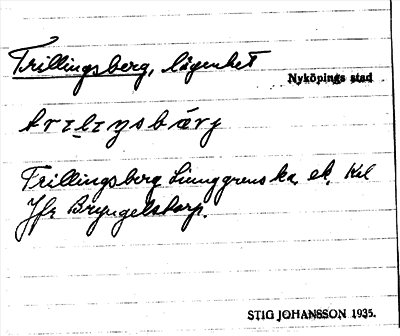 Trillingsberg, lägenhet
Nyköpings stad
Trillingsberg Ljunggrenska ek. Kil
Jfr Bryngelstorp.
STIG JOHANSSON 1935.